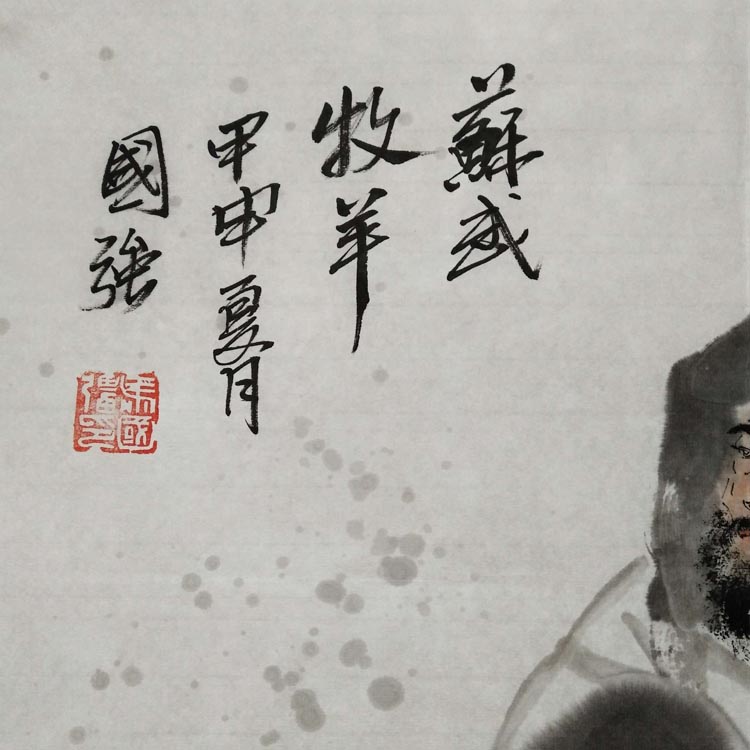 蘇武
牧羊
甲申夏月
國強